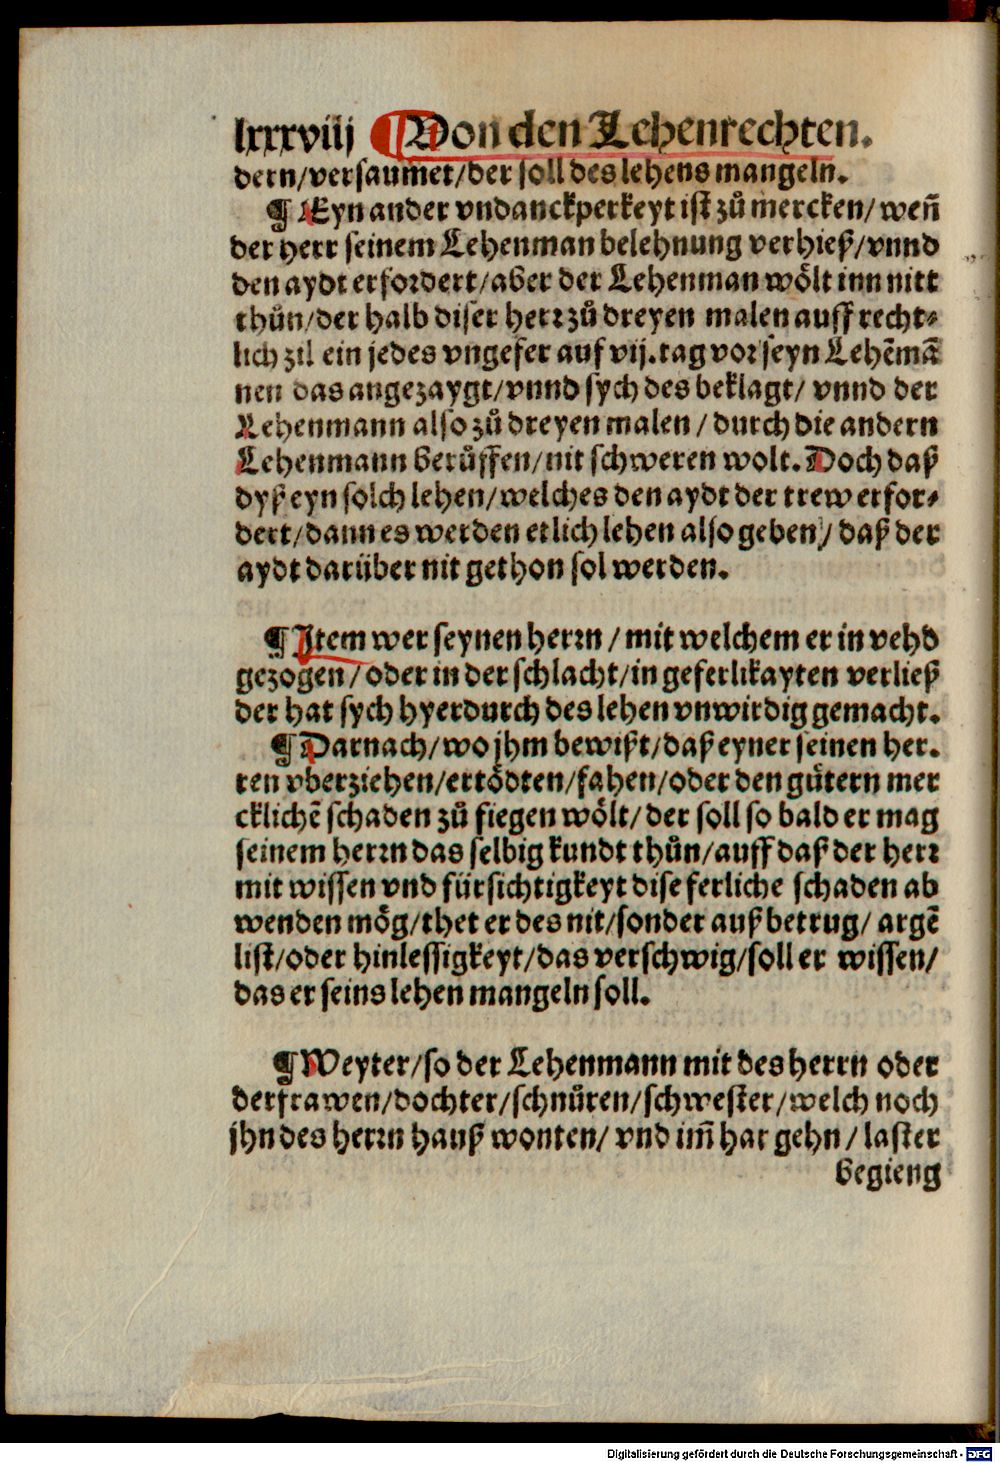 lxxxviij Von den Lehenrechten.
dern/versaumet/der soll des lehens mangeln.
¶ Eyn ander vndanckperkeyt ist zů mercken/weñ
der herr seinem Lehenman belehnung verhieß/vnnd
den aydt erfordert/aber der Lehenman wölt inn nitt
thůn/der halb diser herr zů dreyen malen auff recht⸗
lich zil ein jedes vngefer auf vij.tag vor seyn Lehēmā
nen das angezaygt/vnnd sych des beklagt/ vnnd der
Lehenmann also zů dreyen malen/durch die andern
Lehenmann berůffen/nit schweren wolt. Doch daß
dyß eyn solch lehen/welches den aydt der trew erfor⸗
dert/dann es werden etlich lehen also geben/ daß der
aydt darüber nit gethon sol werden.
¶ Item wer seynen herrn/mit welchem er in vehd
gezogen/oder in der schlacht/in geferlikayten verließ
der hat sych hyerdurch des lehen vnwirdig gemacht.
¶ Darnach/wo jhm bewißt/daß eyner seinen her.
ren vberziehen/ertödten/fahen/oder den gütern mer
cklichē schaden zů fiegen wölt/der soll so bald er mag
seinem herrn das selbig kundt thůn/auff daß der herr
mit wissen vnd fürsichtigkeyt dise ferliche schaden ab
wenden mög/thet er des nit/sonder auß betrug/ argē
list/oder hinlessigkeyt/das verschwig/soll er wissen/
das er seins lehen mangeln soll.
¶ Weyter/so der Lehenmann mit des herrn oder
der frawen/dochter/schnůren/schwester/welch noch
jhn des herrn hauß wonten/ vnd im̄ har gehn/laster
begieng
Digitalisierung gefördert durch die Deutsche Forschungsgemeinschaft - DFG